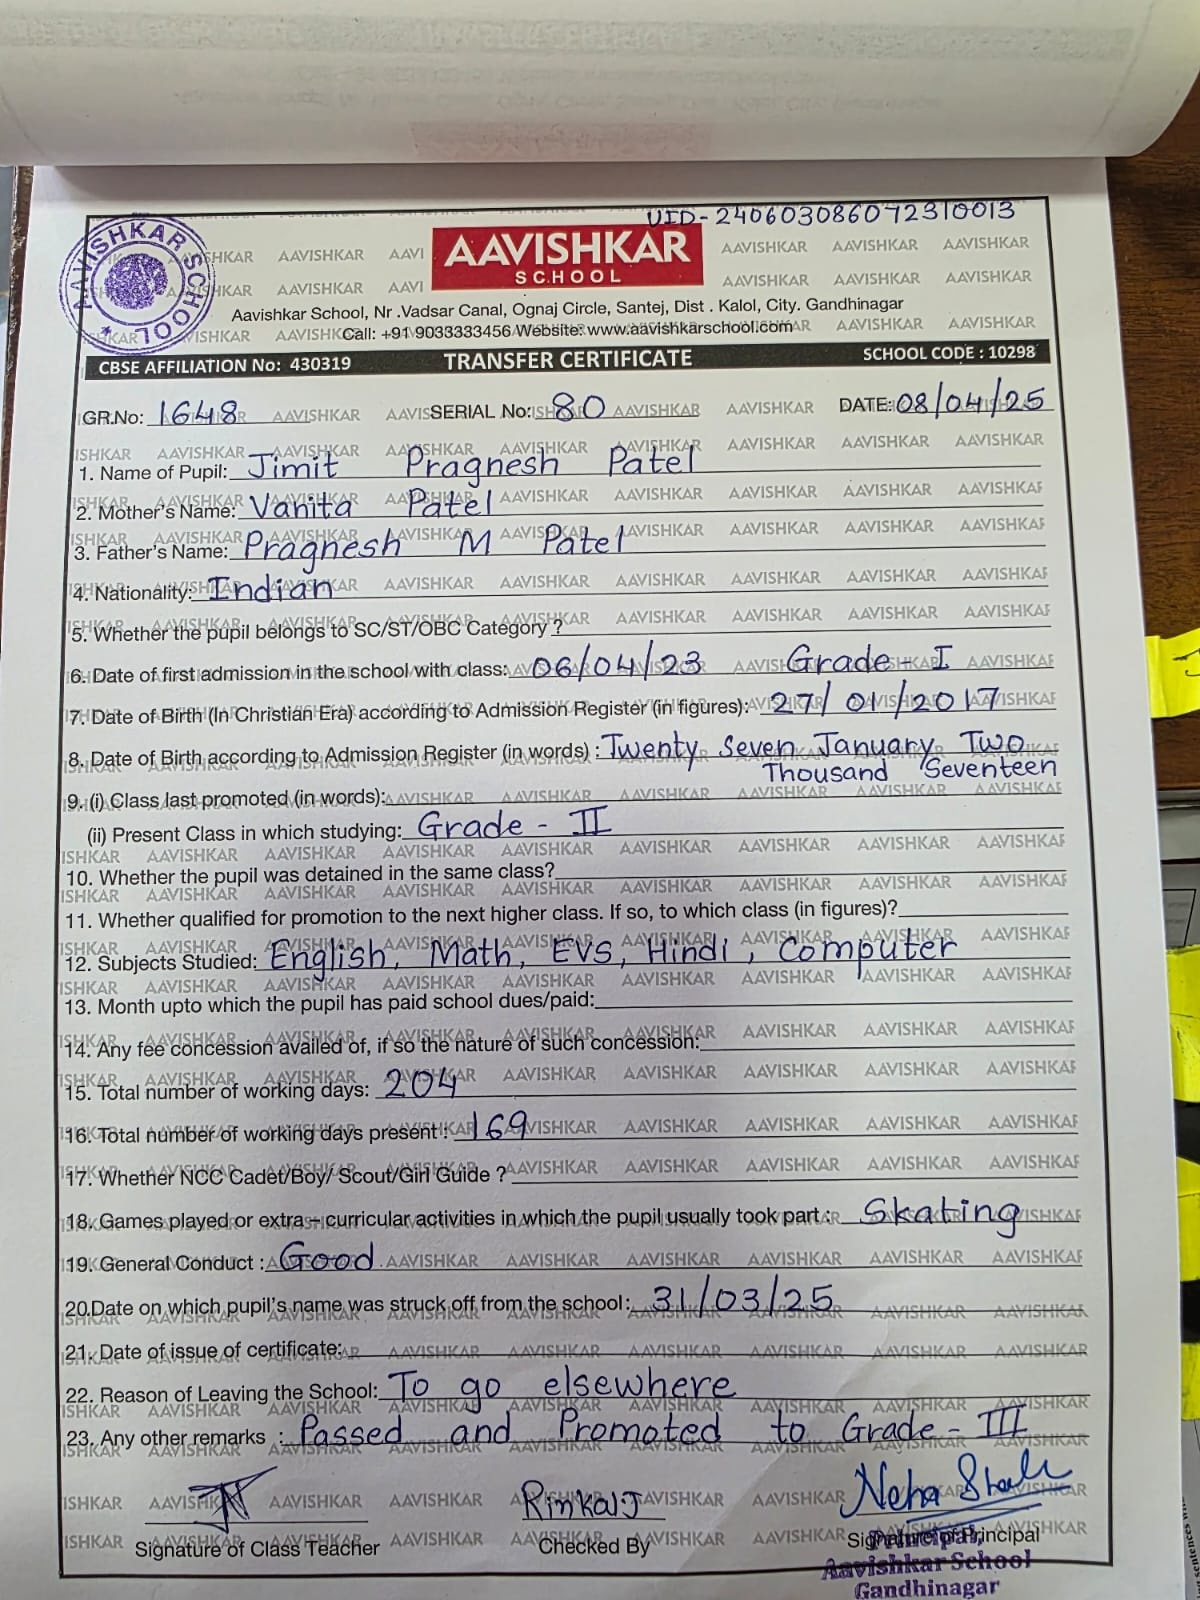 UID-240603086072310013
AAVISHKAR SCHOOL
AAVISHKAR
SCHOOL
Aavishkar School, Nr .Vadsar Canal, Ognaj Circle, Santej, Dist . Kalol, City. Gandhinagar
Call: +91 9033333456 Website: www.aavishkarschool.com
CBSE AFFILIATION No: 430319 TRANSFER CERTIFICATE SCHOOL CODE : 10298
GR.No: 1648 SERIAL No: 80 DATE: 08/04/25
1. Name of Pupil: Jimit Pragnesh Patel
2. Mother's Name: Vanita Patel
3. Father's Name: Pragnesh M Patel
4. Nationality: Indian
5. Whether the pupil belongs to SC/ST/OBC Category ?
6. Date of first admission in the school with class: 06/04/23 Grade - I
7. Date of Birth (In Christian Era) according to Admission Register (in figures): 27/01/2017
8. Date of Birth according to Admission Register (in words) : Twenty Seven January Two
Thousand Seventeen
9. (i) Class last promoted (in words):
(ii) Present Class in which studying: Grade - II
10. Whether the pupil was detained in the same class?
11. Whether qualified for promotion to the next higher class. If so, to which class (in figures)?
12. Subjects Studied: English, Math, EVS, Hindi, Computer
13. Month upto which the pupil has paid school dues/paid:
14. Any fee concession availed of, if so the nature of such concession:
15. Total number of working days: 204
16. Total number of working days present : 169
17. Whether NCC Cadet/Boy/ Scout/Girl Guide ?
18. Games played or extra – curricular activities in which the pupil usually took part : Skating
19. General Conduct : Good
20.Date on which pupil's name was struck off from the school: 31/03/25
21. Date of issue of certificate:
22. Reason of Leaving the School: To go elsewhere
23. Any other remarks : Passed and Promoted to Grade - III
Rinkal.J Neha Shah
Signature of Class Teacher Checked By Signature of Principal
Principal,
Aavishkar School
Gandhinagar